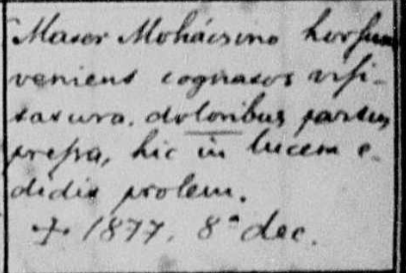 Mater Mohácsino horsum
veniens cognatos visi-
tatura, doloribus partus
pressa, hic in lucem e-
didit prolem.
+ 1877. 8ª dec.